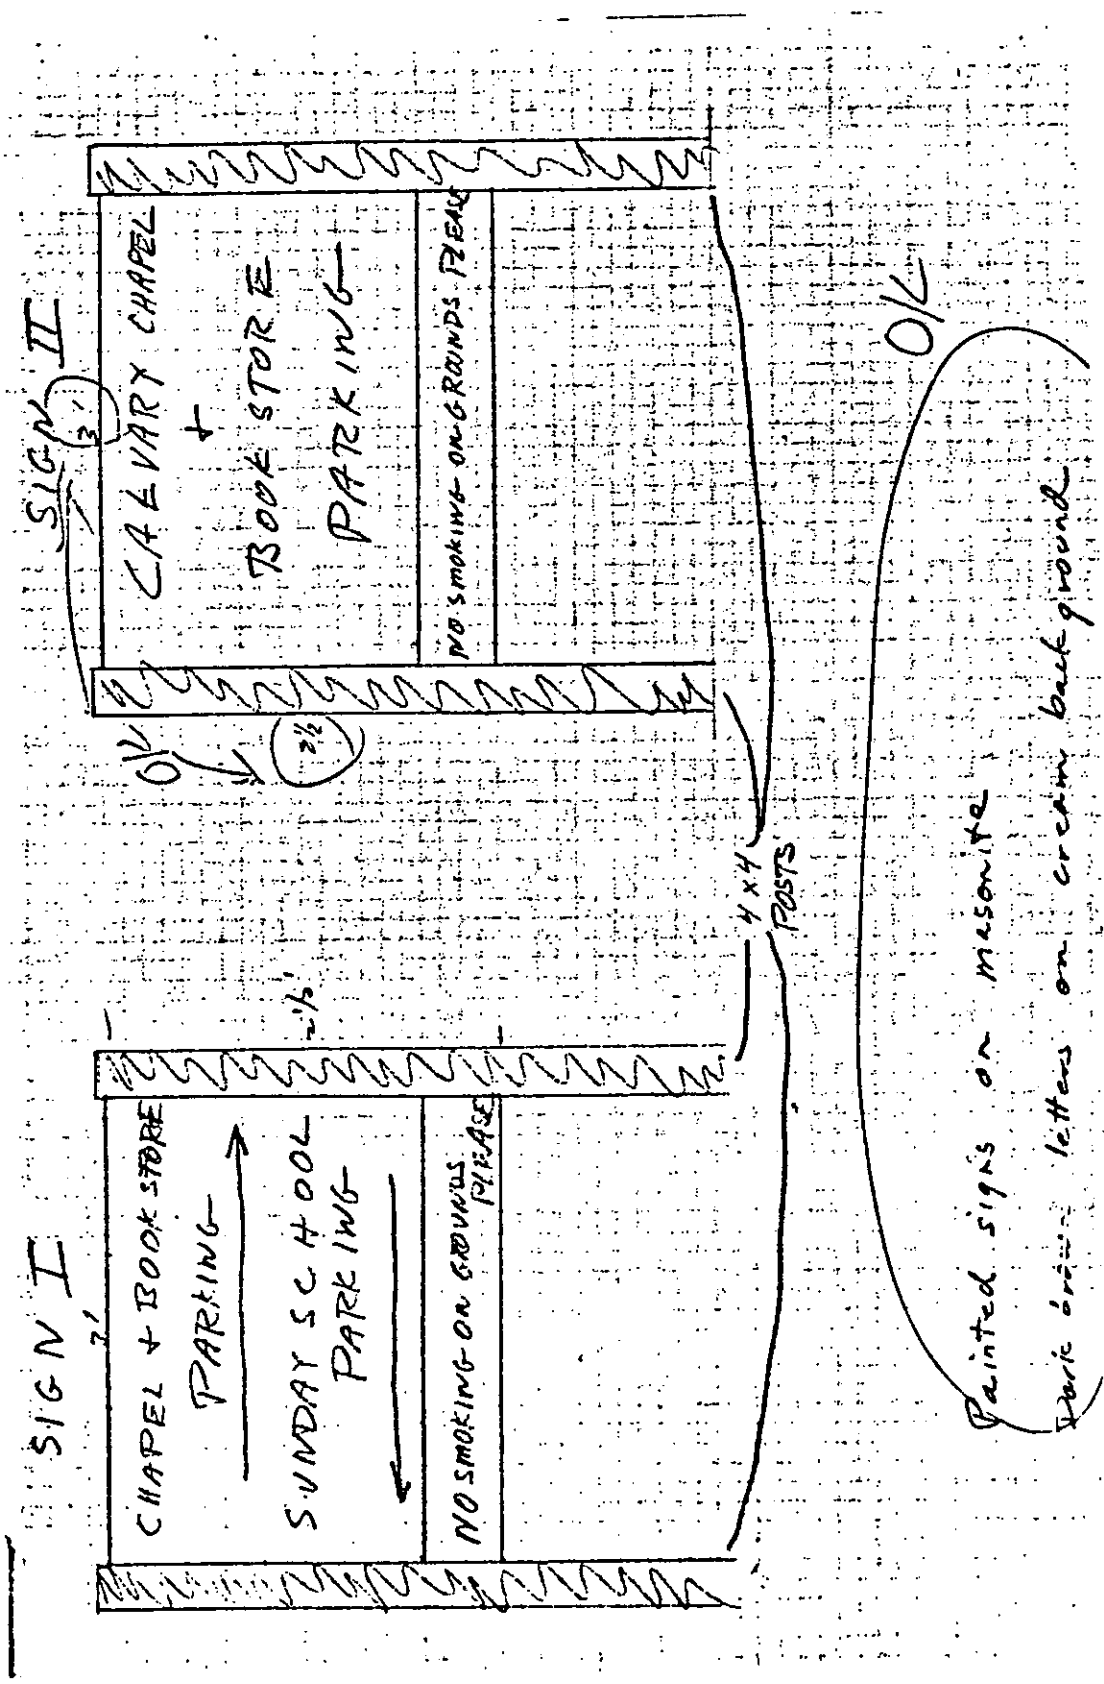 SIGN I
3'
CHAPEL + BOOK STORE
PARKING
SUNDAY SCHOOL
PARKING
NO SMOKING ON GROUNDS
PLEASE
2½'
SIGN II
3'
CALVARY CHAPEL
+
BOOK STORE
PARKING
NO SMOKING ON GROUNDS PLEASE
O/C
2½
4 x 4
POSTS
O/C
Painted signs on masonite
Dark brown letters on cream back ground